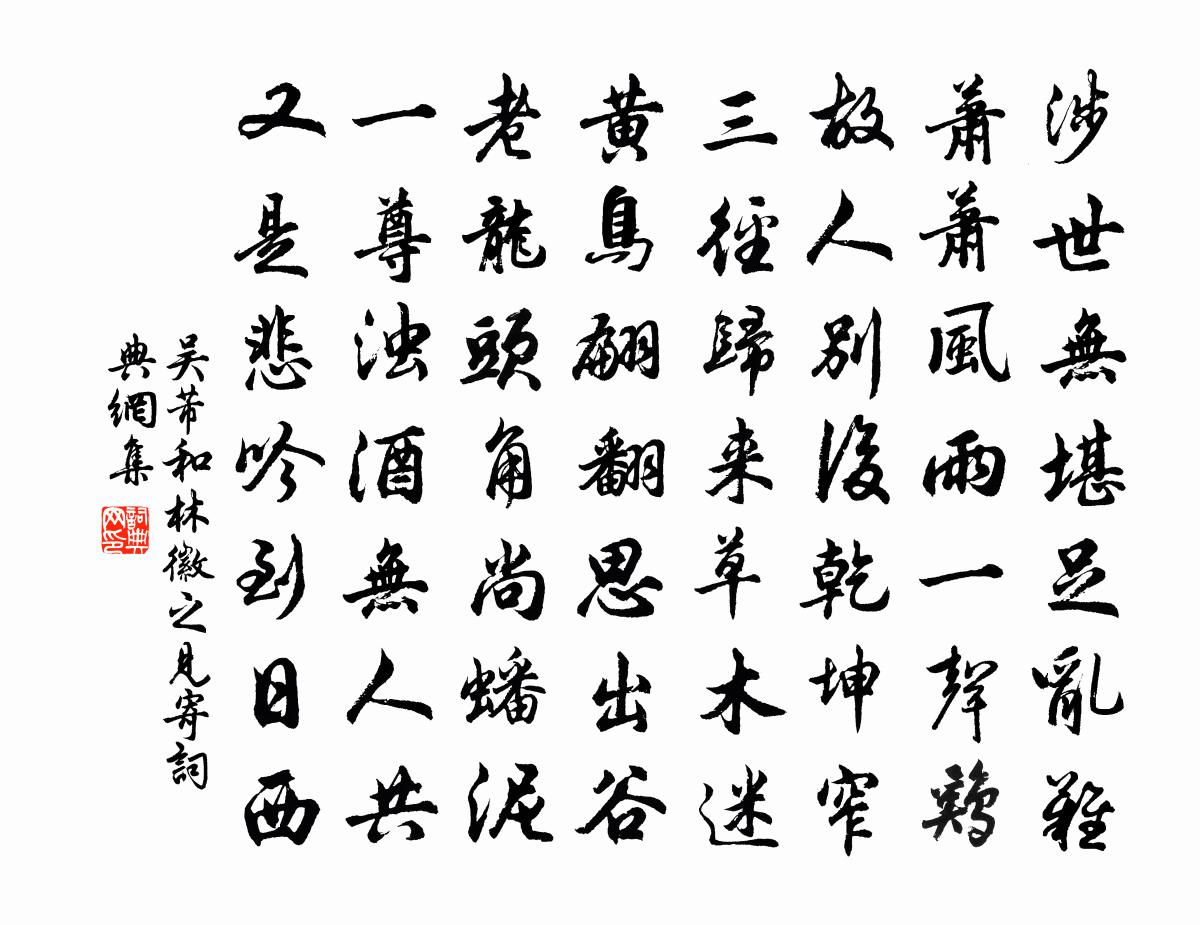 涉世無堪足亂離
蕭蕭風雨一聲鷄
故人別後乾坤窄
三徑歸来草木迷
黄鳥翩翻思出谷
老龍頭角尚蟠泥
一尊浊酒無人共
又是悲吟到日西
吴芾和林徽之見寄詞
典網集
詞典
网印